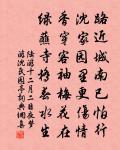 路近城南已怕行
沈家园里更傷情
香穿客袖梅花在
綠蘸寺橋春水生
陸游十二月二日夜夢
游沈氏园亭詞典網